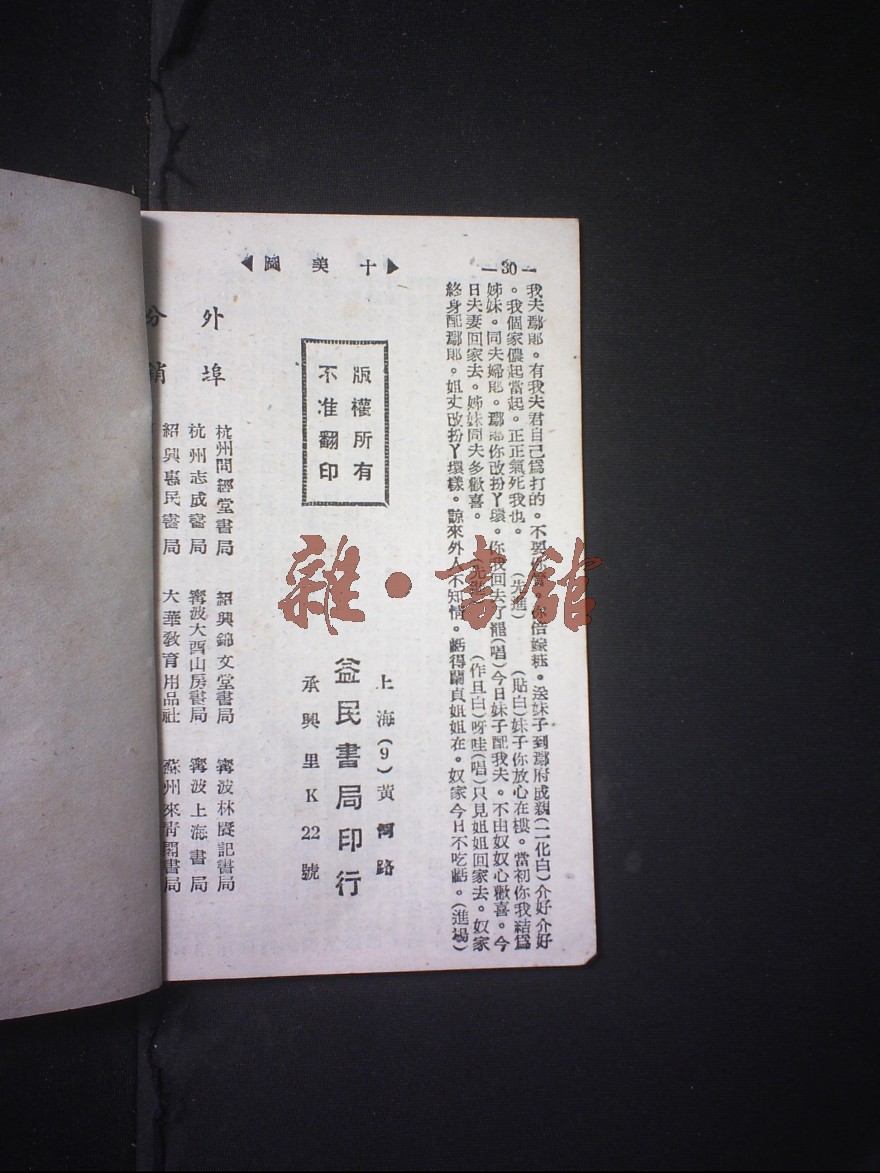 —30—
▶十美圖◀
我夫鄢郎。有我夫君自己爲打的。不要你賞。倍嫁粧。送妹子到鄢府成親(二化白)介好介好
。我個家儂起當起。正正氣死我也。(先進)(貼白)妹子你放心在樓。當初你我結爲
姊妹。同夫婦郎。鄢郎你改扮丫環。你我回去了罷(唱)今日妹子配我夫。不由奴奴心歡喜。今
日夫妻回家去。姊妹同夫多歡喜。(先進)(作旦白)呀哇(唱)只見姐姐回家去。奴家
終身配鄢郎。姐丈改扮丫環樣。諒來外人不知情。虧得蘭貞姐姐在。奴家今日不吃虧。(進場)
版權所有
不准翻印
上海(9)黃河路
益民書局印行
承興里K22號
外埠
分銷
杭州問經堂書局 紹興錦文堂書局 寗波林賡記書局
杭州志成書局 寗波大酉山房書局 寗波上海書局
紹興惠民書局 大華敎育用品社 蘇州來靑閣書局
雜·書館